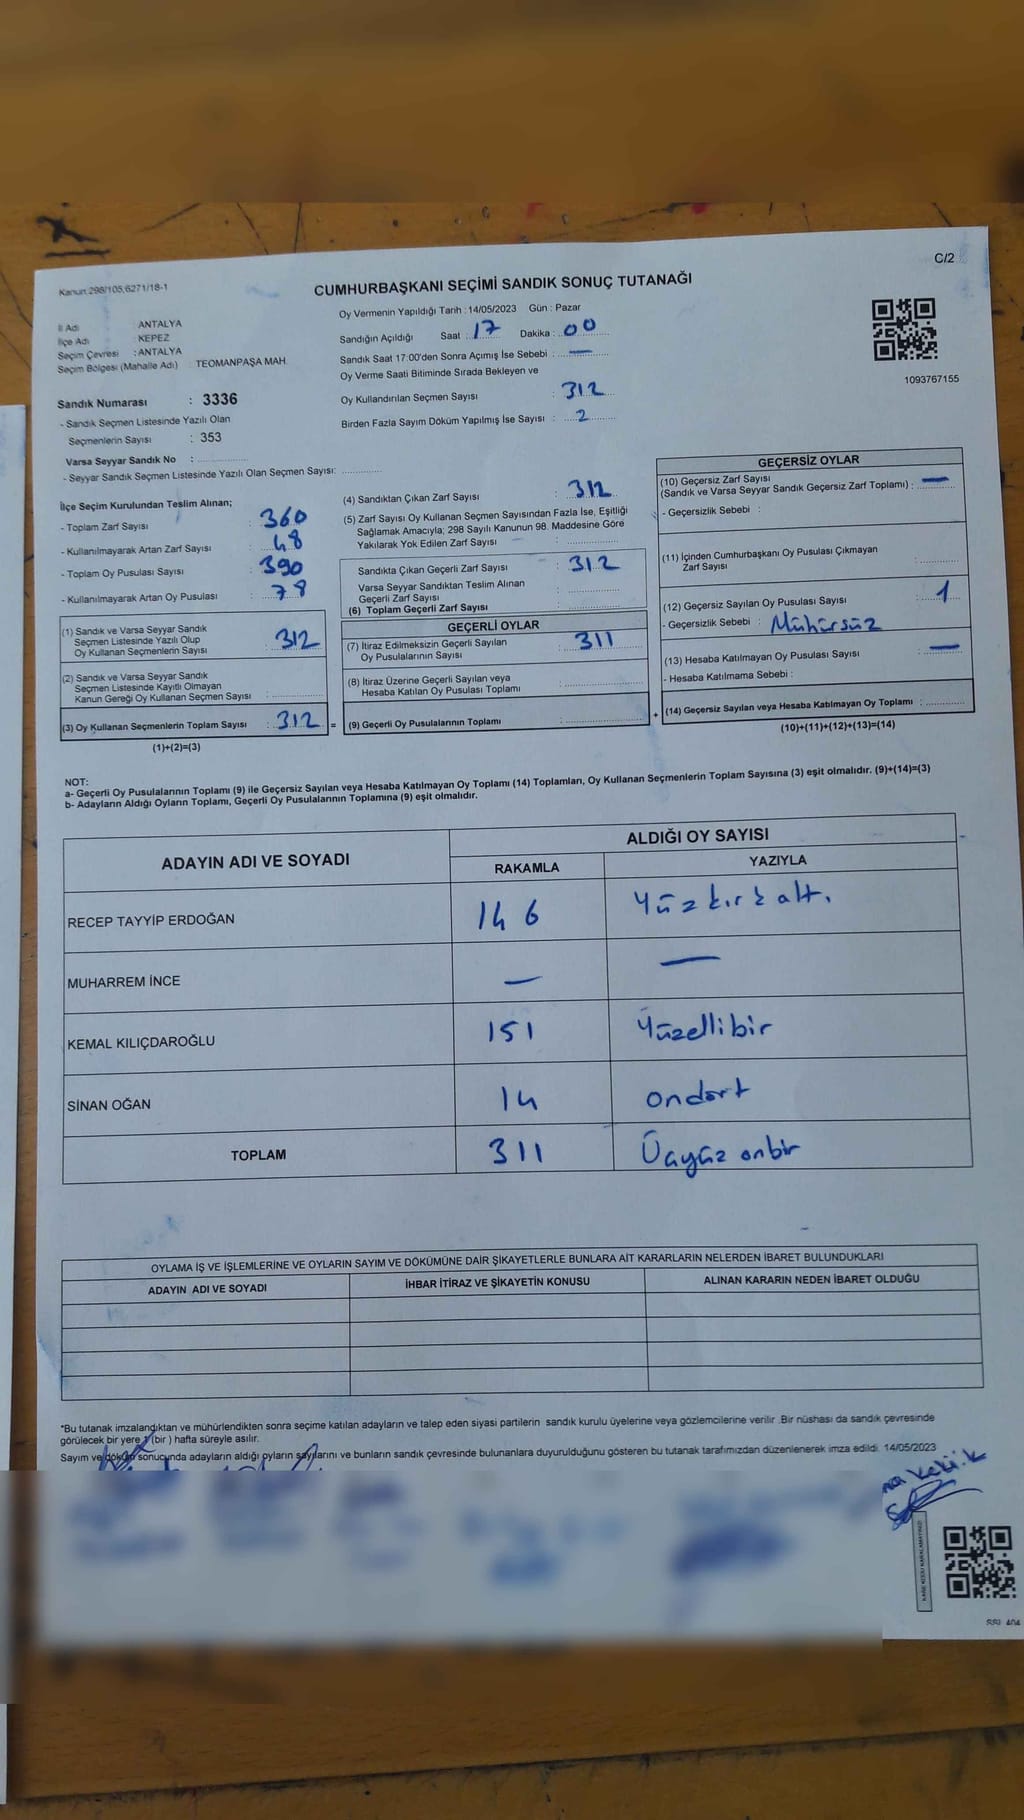 C/2
Kanun 298/105,6271/18-1
CUMHURBAŞKANI SEÇİMİ SANDIK SONUÇ TUTANAĞI
İl Adı : ANTALYA
İlçe Adı : KEPEZ
Seçim Çevresi : ANTALYA
Seçim Bölgesi (Mahalle Adı) : TEOMANPAŞA MAH.
Sandık Numarası : 3336
- Sandık Seçmen Listesinde Yazılı Olan
Seçmenlerin Sayısı : 353
Varsa Seyyar Sandık No :
- Seyyar Sandık Seçmen Listesinde Yazılı Olan Seçmen Sayısı:
Oy Vermenin Yapıldığı Tarih : 14/05/2023 Gün : Pazar
Sandığın Açıldığı Saat : 17 Dakika : 00
Sandık Saat 17:00'den Sonra Açımış İse Sebebi : —
Oy Verme Saati Bitiminde Sırada Bekleyen ve
Oy Kullandırılan Seçmen Sayısı : 312
Birden Fazla Sayım Döküm Yapılmış İse Sayısı : 2
1093767155
İlçe Seçim Kurulundan Teslim Alınan;
- Toplam Zarf Sayısı : 360
- Kullanılmayarak Artan Zarf Sayısı : 48
- Toplam Oy Pusulası Sayısı : 390
- Kullanılmayarak Artan Oy Pusulası : 78
(1) Sandık ve Varsa Seyyar Sandık
Seçmen Listesinde Yazılı Olup
Oy Kullanan Seçmenlerin Sayısı : 312
(2) Sandık ve Varsa Seyyar Sandık
Seçmen Listesinde Kayıtlı Olmayan
Kanun Gereği Oy Kullanan Seçmen Sayısı :
(3) Oy Kullanan Seçmenlerin Toplam Sayısı : 312 =
(1)+(2)=(3)
(4) Sandıktan Çıkan Zarf Sayısı : 312
(5) Zarf Sayısı Oy Kullanan Seçmen Sayısından Fazla İse, Eşitliği
Sağlamak Amacıyla; 298 Sayılı Kanunun 98. Maddesine Göre
Yakılarak Yok Edilen Zarf Sayısı :
Sandıkta Çıkan Geçerli Zarf Sayısı : 312
Varsa Seyyar Sandıktan Teslim Alınan
Geçerli Zarf Sayısı :
(6) Toplam Geçerli Zarf Sayısı :
GEÇERLİ OYLAR
(7) İtiraz Edilmeksizin Geçerli Sayılan
Oy Pusulalarının Sayısı : 311
(8) İtiraz Üzerine Geçerli Sayılan veya
Hesaba Katılan Oy Pusulası Toplamı :
(9) Geçerli Oy Pusulalarının Toplamı : +
GEÇERSİZ OYLAR
(10) Geçersiz Zarf Sayısı
(Sandık ve Varsa Seyyar Sandık Geçersiz Zarf Toplamı) : —
- Geçersizlik Sebebi :
(11) İçinden Cumhurbaşkanı Oy Pusulası Çıkmayan
Zarf Sayısı :
(12) Geçersiz Sayılan Oy Pusulası Sayısı : 1
- Geçersizlik Sebebi : Mühürsüz
(13) Hesaba Katılmayan Oy Pusulası Sayısı : —
- Hesaba Katılmama Sebebi :
(14) Geçersiz Sayılan veya Hesaba Katılmayan Oy Toplamı :
(10)+(11)+(12)+(13)=(14)
NOT:
a- Geçerli Oy Pusulalarının Toplamı (9) ile Geçersiz Sayılan veya Hesaba Katılmayan Oy Toplamı (14) Toplamları, Oy Kullanan Seçmenlerin Toplam Sayısına (3) eşit olmalıdır. (9)+(14)=(3)
b- Adayların Aldığı Oyların Toplamı, Geçerli Oy Pusulalarının Toplamına (9) eşit olmalıdır.
ADAYIN ADI VE SOYADI ALDIĞI OY SAYISI
RAKAMLA YAZIYLA
RECEP TAYYİP ERDOĞAN 146 Yüzkırkaltı
MUHARREM İNCE — —
KEMAL KILIÇDAROĞLU 151 Yüzellibir
SİNAN OĞAN 14 ondört
TOPLAM 311 Üçyüz onbir
OYLAMA İŞ VE İŞLEMLERİNE VE OYLARIN SAYIM VE DÖKÜMÜNE DAİR ŞİKAYETLERLE BUNLARA AİT KARARLARIN NELERDEN İBARET BULUNDUKLARI
ADAYIN ADI VE SOYADI İHBAR İTİRAZ VE ŞİKAYETİN KONUSU ALINAN KARARIN NEDEN İBARET OLDUĞU
*Bu tutanak imzalandıktan ve mühürlendikten sonra seçime katılan adayların ve talep eden siyasi partilerin sandık kurulu üyelerine veya gözlemcilerine verilir .Bir nüshası da sandık çevresinde
görülecek bir yere 1 (bir ) hafta süreyle asılır.
Sayım ve döküm sonucunda adayların aldığı oyların sayılarını ve bunların sandık çevresinde bulunanlara duyurulduğunu gösteren bu tutanak tarafımızdan düzenlenerek imza edildi. 14/05/2023